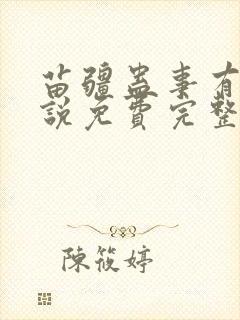 苗疆蛊事有
說免費完整
陳筱婷